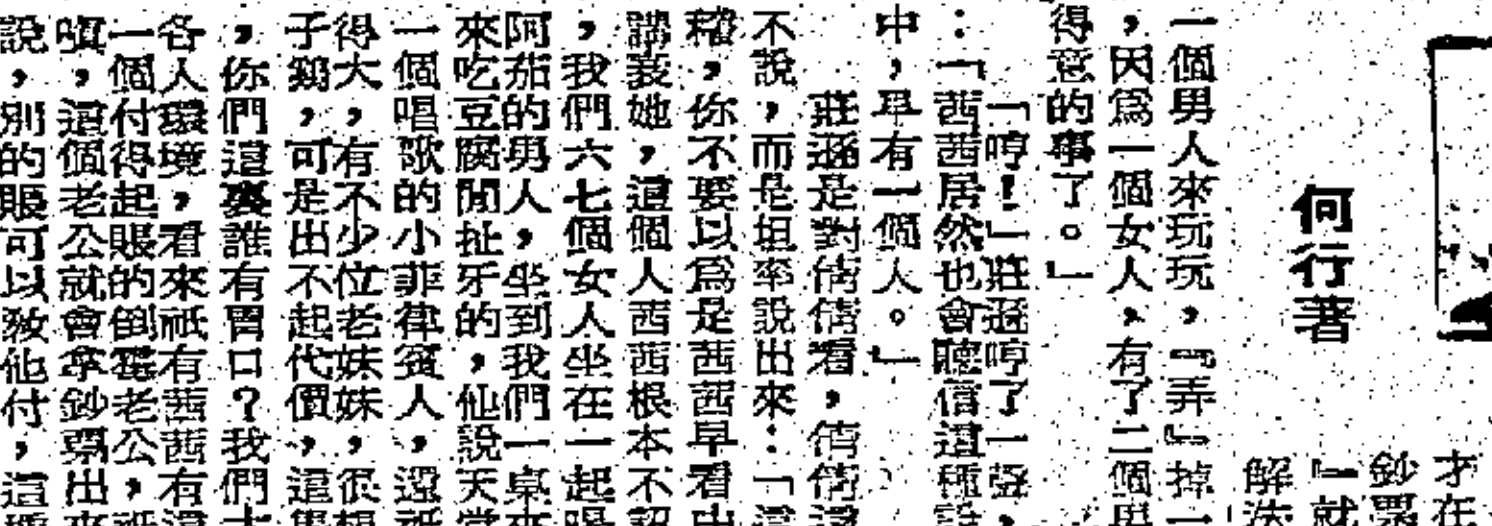 才在
鈔票
』就
解決
何行著
一個男人來玩玩，『弄』掉一
，因為一個女人，有了二個男
得意的事了。」
「哼！」莊遜哼了一聲，
：「茜茜居然也會聽信這種說
中，早有一個人。」
莊遜是對倩倩看，倩倩還
不說，而是坦率說出來：「這
，你不要以為是茜茜早看中
她，這個人茜茜根本不認
，我們六七個女人坐在一起喝
阿茄的男人，坐到我們一桌來
來吃豆腐閒扯牙的，他說天堂
一個唱歌的小菲律賓人，還祇
得大，有不少位老妹妹，很想
子鷄，可是出不起代價，這
，你們這裏誰有胃口？我們大
各人環境，看來祇有茜茜有這
一個付得起賬的倒霉老公，祇
嗔，這個老公就會拿鈔票出來
說，別的賬可以教他付，這